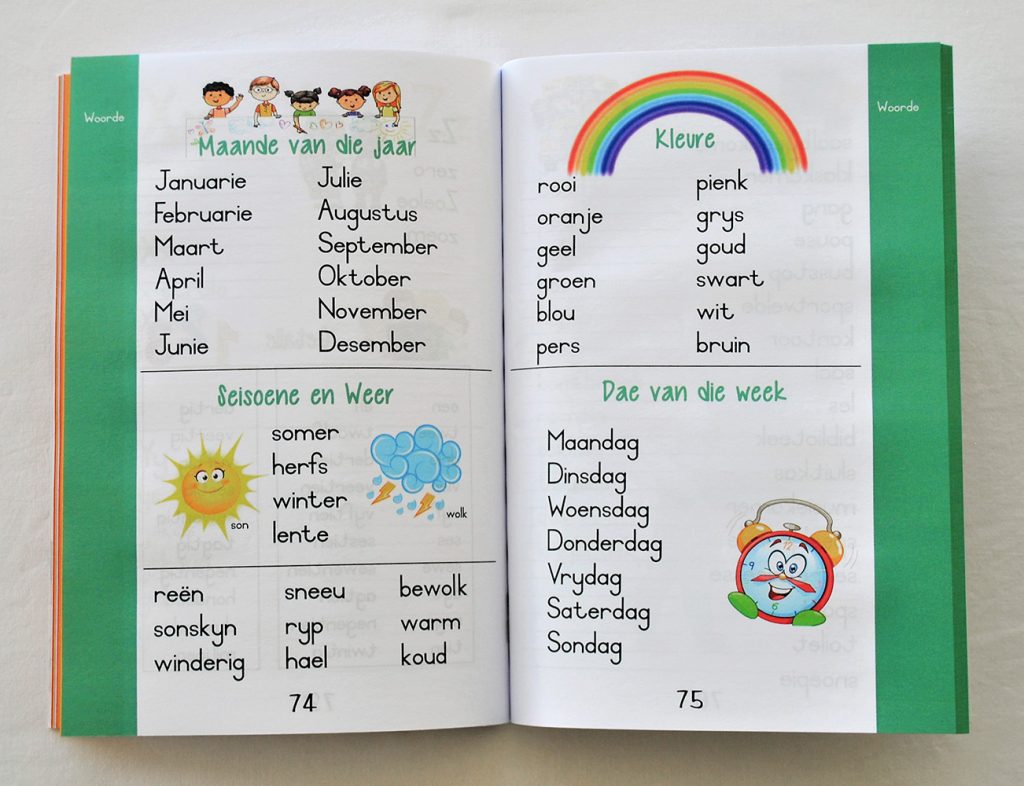 Woorde
Maande van die jaar
Januarie
Februarie
Maart
April
Mei
Junie
Julie
Augustus
September
Oktober
November
Desember
Seisoene en Weer
somer
herfs
winter
lente
son
wolk
reën
sonskyn
winderig
sneeu
ryp
hael
bewolk
warm
koud
74
Woorde
Kleure
rooi
oranje
geel
groen
blou
pers
pienk
grys
goud
swart
wit
bruin
Dae van die week
Maandag
Dinsdag
Woensdag
Donderdag
Vrydag
Saterdag
Sondag
12
9
3
6
75